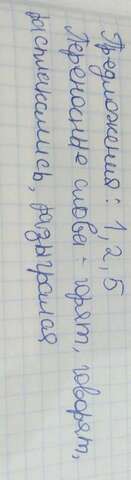 Предложения: 1, 2, 5
Переносные слова: горят, говорят,
расплакались, разыгралая